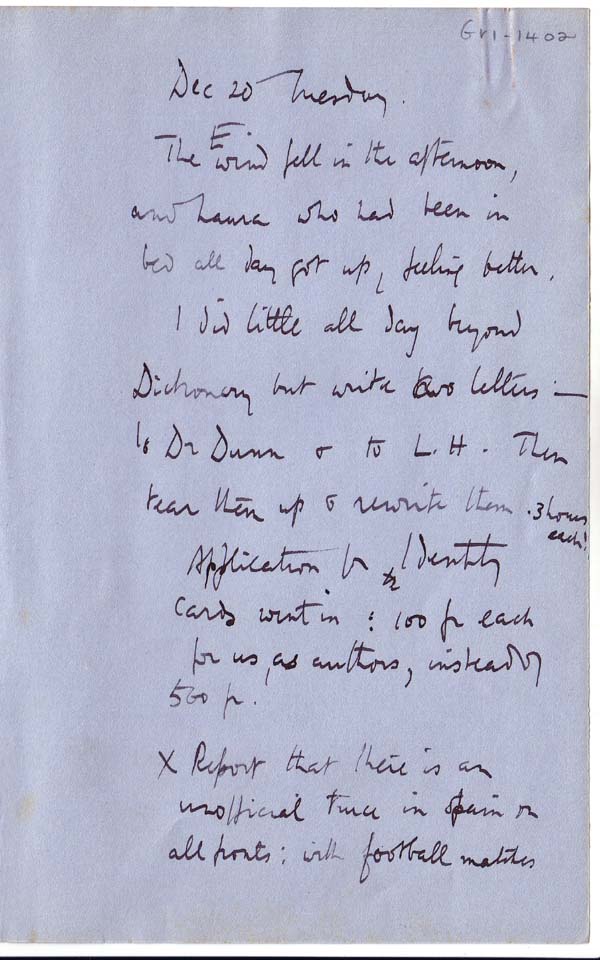 Gr1-1402
Dec 20 Tuesday.
The E. wind fell in the afternoon,
and Laura who had been in
bed all day got up, feeling better.
I did little all day beyond
Dictionary but write two letters —
to Dr Dunn & to L.H. Then
tear them up & rewrite them . 3 hours
each!
Application for Identity
Cards went in : 100 fr each
for us, as authors, instead of
560 fr.
X Report that there is an
unofficial truce in Spain on
all fronts : with football matches